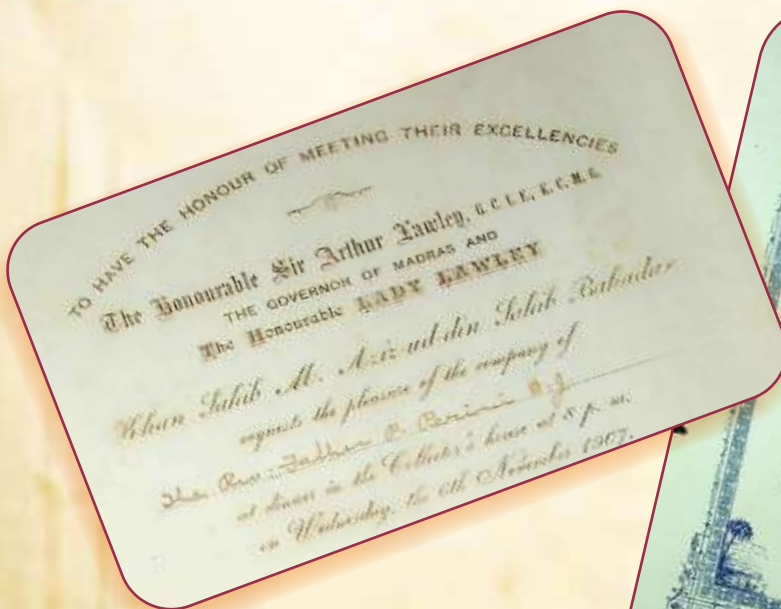 TO HAVE THE HONOUR OF MEETING THEIR EXCELLENCIES
The Honourable Sir Arthur Lawley, G.C.I.E., K.C.M.G.
THE GOVERNOR OF MADRAS AND
The Honourable LADY LAWLEY
Khan Sahib M. Aziz-ud-din Sahib Bahadur
requests the pleasure of the company of
The Rev: Father P. Perini S. J.
at dinner in the Collector's house at 8 p. m.
on Wednesday, the 6th November 1907.